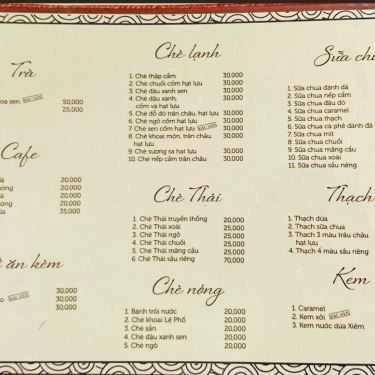 Trà
sen,
50,000
25,000
Cafe
35,000
ăn kèm
30,000
30,000
30,000
Chè lạnh
1. Chè thập cẩm 30,000
2. Chè chuối cốm hạt lựu 30,000
3. Chè đậu xanh sen 30,000
4. Chè đậu xanh,
cốm và hạt lựu 30,000
5. Chè đỗ đỏ trân châu, hạt lựu 30,000
6. Chè ngô cốm hạt lựu 30,000
7. Chè sen cốm hạt lựu 30,000
8. Chè khoai môn, trân châu
hạt lựu 30,000
9. Chè sương sa hạt lựu 30,000
10. Chè nếp cẩm trân châu 30,000
Chè Thái
1. Chè Thái truyền thống 20,000
2. Chè Thái xoài 25,000
3. Chè Thái ngô 25,000
4. Chè Thái chuối 25,000
5. Chè Thái mãng cầu 25,000
6. Chè Thái sầu riêng 70,000
Chè nóng
1. Bánh trôi nước 20,000
2. Chè khoai Lệ Phố 20,000
3. Chè sắn 20,000
4. Chè đậu xanh sen 20,000
5. Chè ngô 20,000
Sữa chu
1. Sữa chua đánh đá
2. Sữa chua nếp cẩm
3. Sữa chua đâu đỏ
4. Sữa chua caramel
5. Sữa chua thạch
6. Sữa chua cà phê đánh đá
7. Sữa chua mít
8. Sữa chua chuối
9. Sữa chua mãng cầu
10. Sữa chua xoài
11. Sữa chua sầu riêng
Thạch
1. Thạch dừa
2. Thạch sữa chua
3. Thạch 3 màu trâu châu
hạt lựu
4. Thạch 4 màu sầu riêng
Kem
1. Caramel
2. Kem xôi
3. Kem nước dừa Xiêm